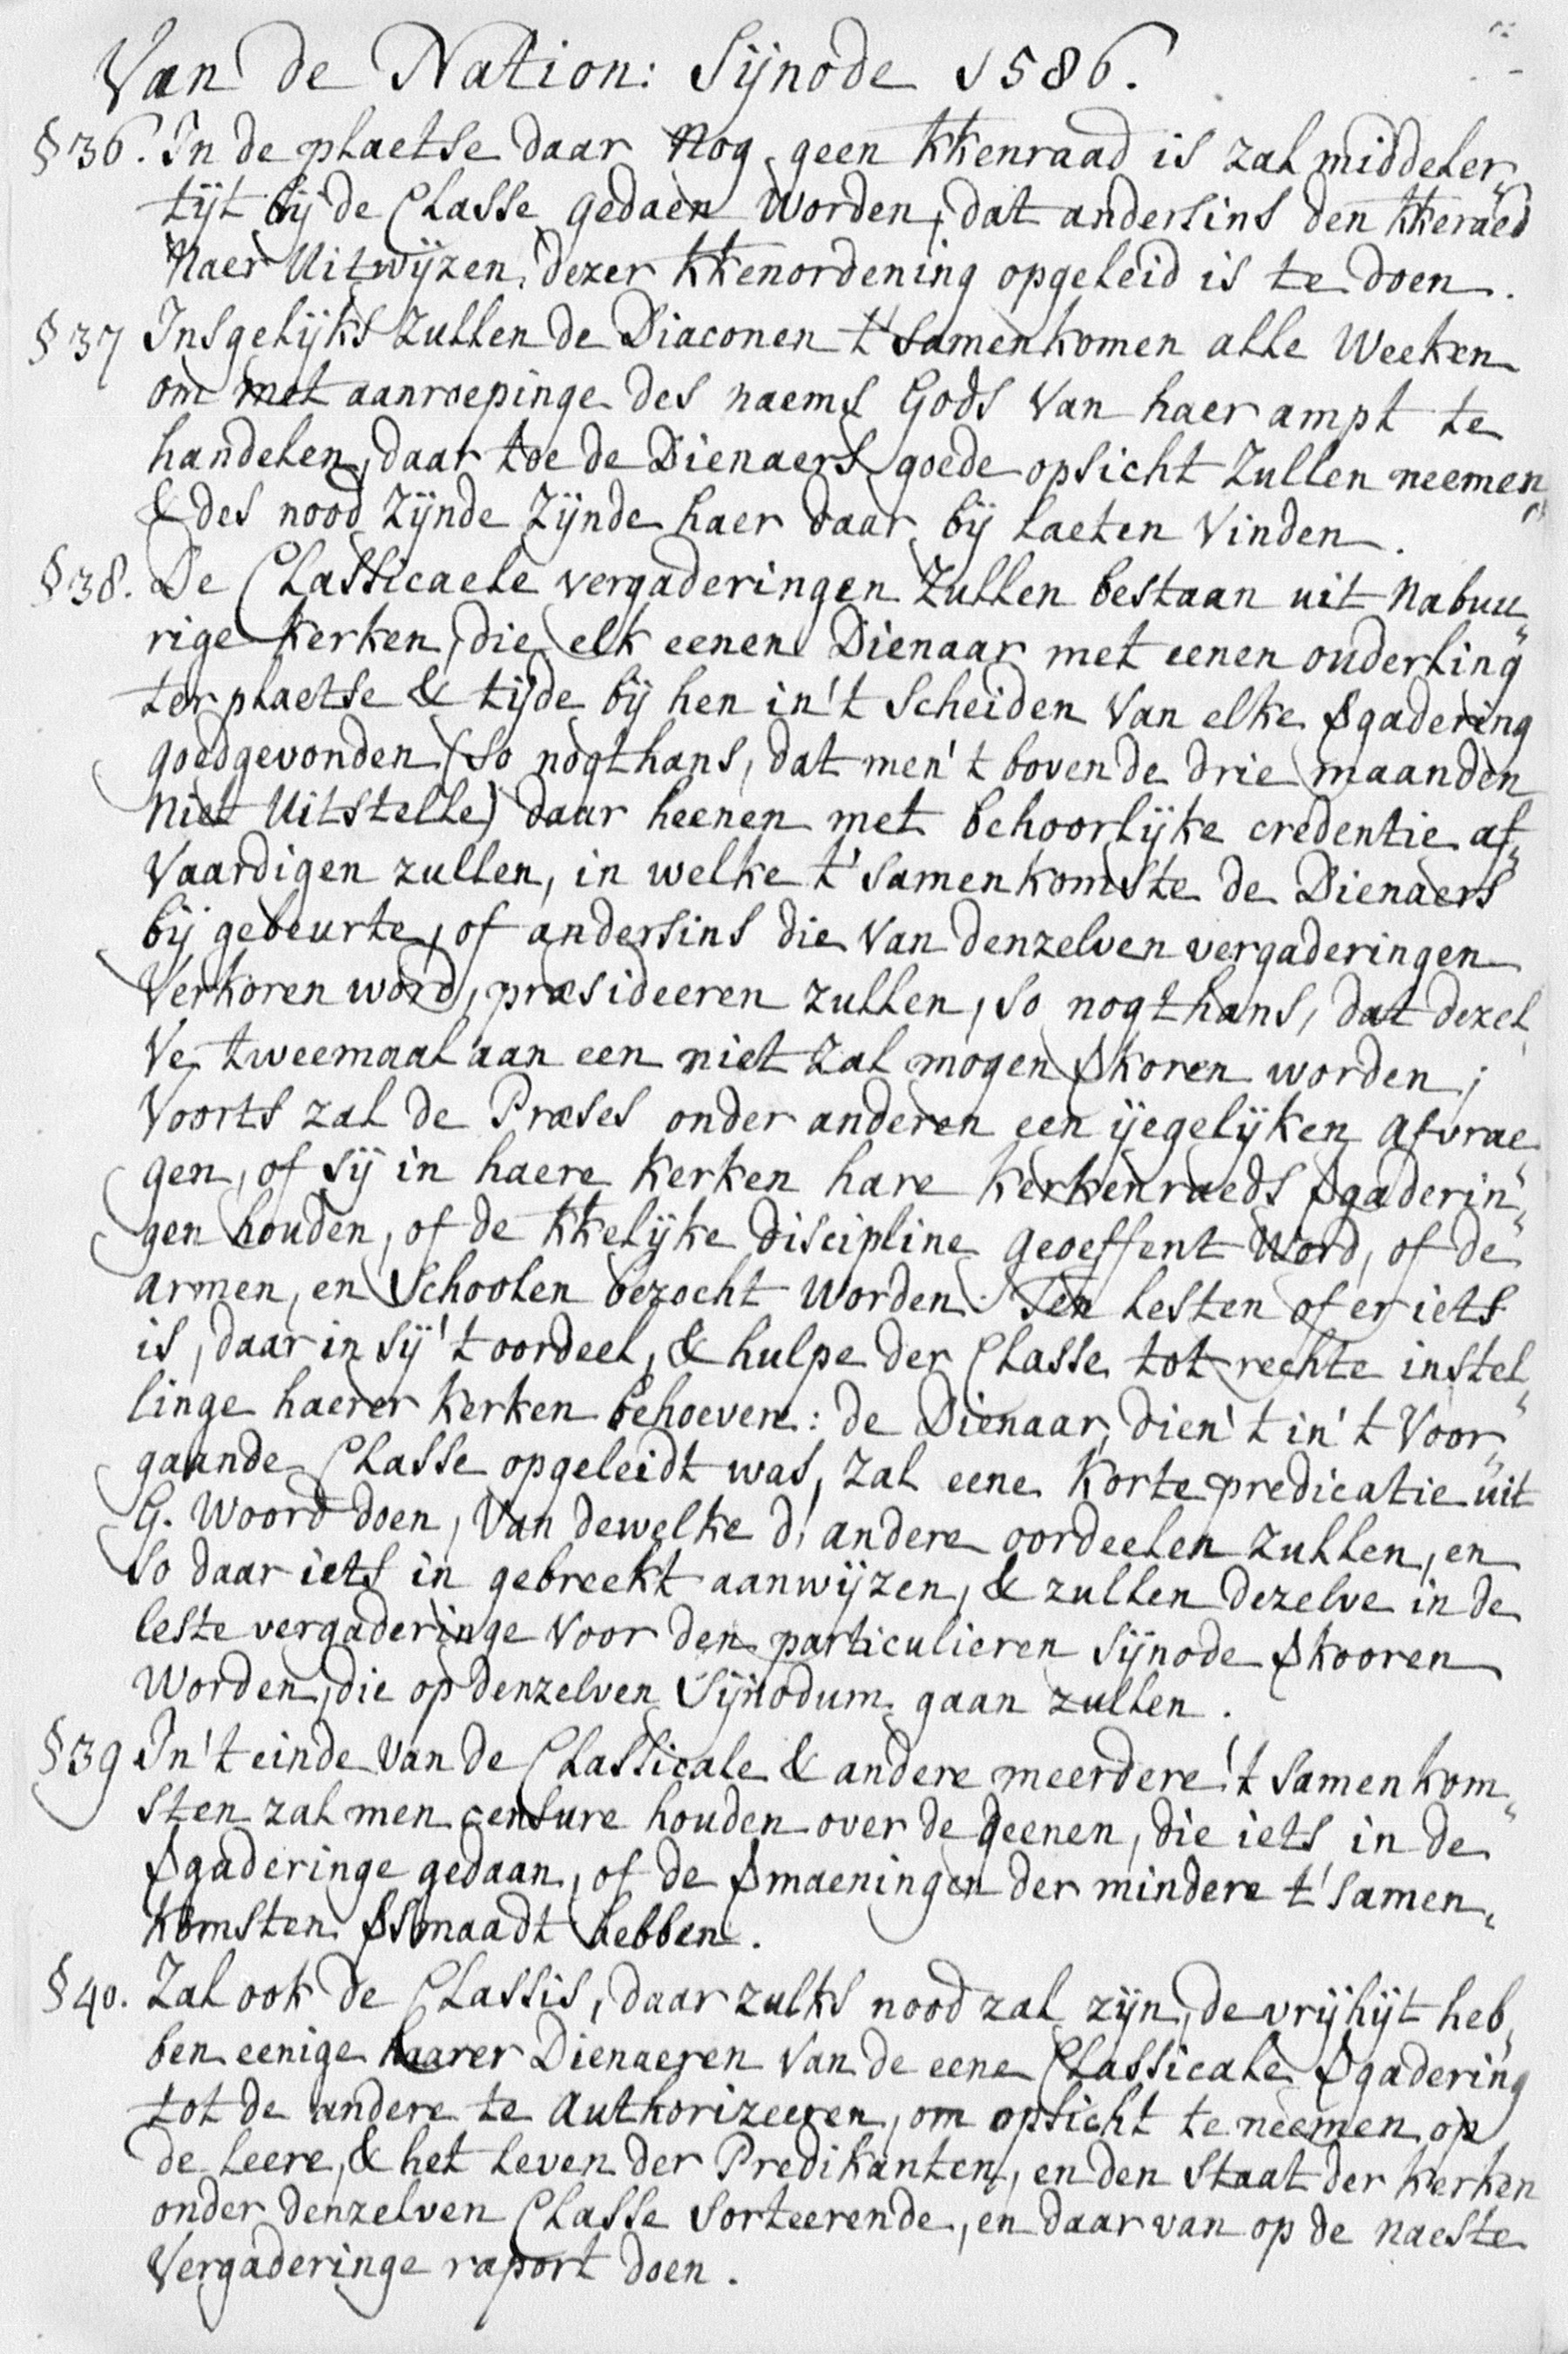 Van de Nation: Sijnode 1586.
§36. In de plaetse daar Nog geen kkenraad is zal middeler„
tijt bij de Classe gedaen worden, dat andersins den kkeraed
Naer Uitwijzen dezer kkenordening opgeleid is te doen.
§37 Insgelijks zullen de Diaconen t'samenkomen alle Weeken
om met aanroepinge des naems Gods Van haer ampt te
handelen, daar toe de Dienaers goede opsicht Zullen neemen,
& des nood Zijnde Zijnde haer daar bij laeten Vinden.
§38. De Classicaele vergaderingen Zullen bestaan uit Nabuu„
rige kerken, die elk eenen Dienaar met eenen ouderling
ter plaetse & tijde bij hen in't Scheiden Van elke Vgadering
goedgevonden (so nogthans, dat men't boven de drie maanden
Niet Uitstelle) daar heenen met behoorlijke credentie af„
Vaardigen zullen, in welke t'samenkomste de Dienaers
bij gebeurte, of andersins die Van denzelven vergaderingen
Verkoren word, præsideeren zullen, so nogthans, dat dezel„
Ve tweemaal aan een niet Zal mogen Vkoren worden;
Voorts zal de Præses onder anderen een ijegelijken afvrae„
gen, of sij in haere kerken hare kerkenraeds Vgaderin„
gen houden, of de kkelijke discipline geoeffent Word, of de
armen, en Schoolen bezocht Worden. Ten lesten of er iets
is, daar in sij 't oordeel, & hulpe der Classe tot rechte instel„
linge haerer kerken behoeven: de Dienaar, dien't in't Voor„
gaande Classe opgeleidt was, Zal eene korte predicatie uit
G. Woord doen, Van dewelke d'andere oordeelen zullen, en
So daar iets in gebreekt aanwijzen, & zullen dezelve in de
leste vergaderinge Voor den particulieren Sijnode Vkooren
Worden, die op denzelven Sijnodum gaan zullen.
§39 In't einde Van de Classicale & andere meerdere 't samenkom„
sten zal men censure houden over de geenen, die iets in de
Vgaderinge gedaan, of de Vmaeningen der mindere t'samen„
komsten Vsmaadt hebben.
§40. Zal ook de Classis, daar zulks nood zal zijn, de vrijhijt heb„
ben eenige haarer Dienaeren Van de eene Classicale Vgadering
tot de andere te Authorizeeren, om opsicht te neemen op
de leere, & het leven der Predikanten, en den Staat der kerken
onder denzelven Classe Sorteerende, en daar van op de naeste
Vergaderinge raport doen.